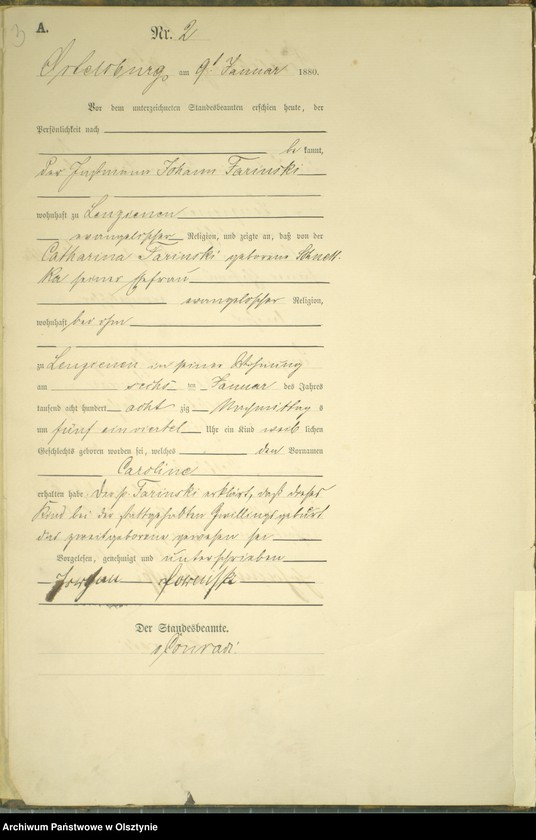 3
A.
Nr. 2
Ortelsburg am 9t Januar 1880.
Vor dem unterzeichneten Standesbeamten erschien heute, der
Persönlichkeit nach
be kannt,
der Instmann Johann Farinski
wohnhaft zu Lenzienen
evangelischer Religion, und zeigte an, daß von der
Catharina Farinski geborene
ka seiner Ehefrau
evangelischer Religion,
wohnhaft bei ihm
zu Lenzienen in seiner Wohnung
am sechs ten Januar des Jahres
tausend acht hundert acht zig Nachmittag s
um fünf einviertel Uhr ein Kind weib lichen
Geschlechts geboren worden sei, welches den Vornamen
Caroline
erhalten habe. Der p. Farinski erklärt, daß dieses
Kind bei der stattgehabten Zwillingsgeburt
das zweitgeborene gewesen sei
Vorgelesen, genehmigt und unterschrieben
Der Standesbeamte.
Conradi
Archiwum Państwowe w Olsztynie